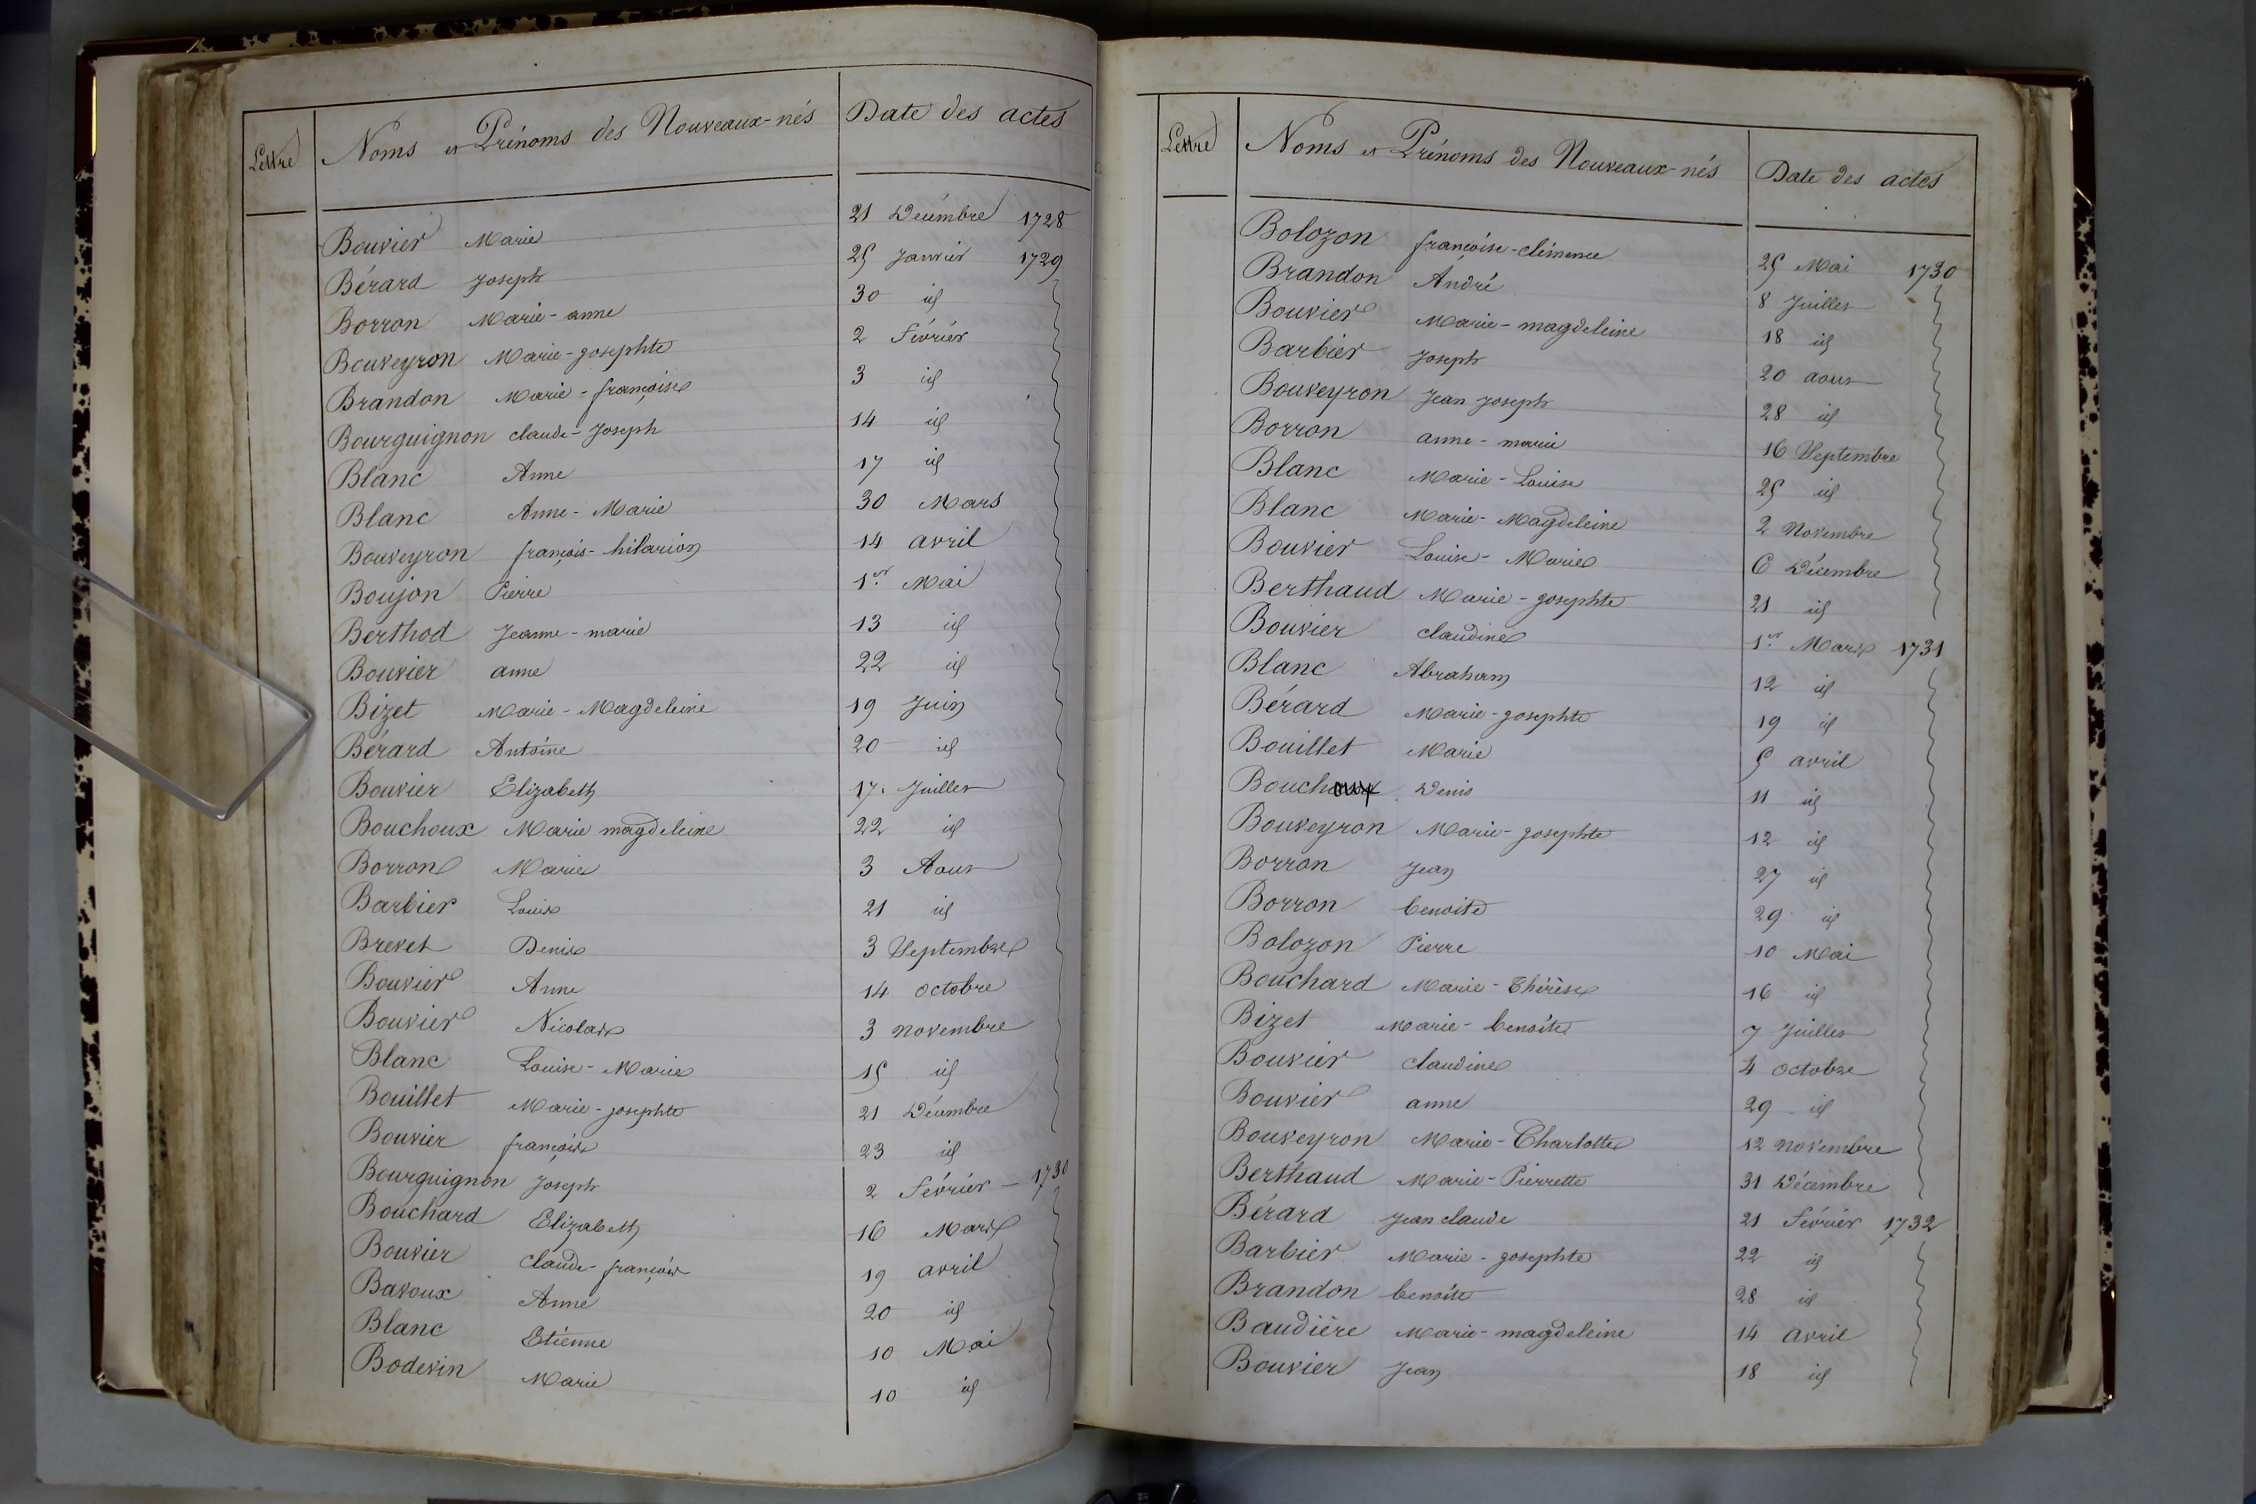 Lettre Noms et Prénoms des Nouveaux-nés Date des actes
Bouvier Marie 21 Décembre 1728
Bérard Joseph 25 Janvier 1729
Borron Marie-anne 30 id
Bouveyron Marie-josephte 2 Février
Brandon Marie-françoise 3 id
Bourguignon claude-Joseph 14 id
Blanc Anne 17 id
Blanc Anne-Marie 30 Mars
Bouveyron françois-hilarion 14 avril
Boujon Pierre 1er Mai
Berthod Jeanne-marie 13 id
Bouvier anne 22 id
Bizet Marie-Magdeleine 19 Juin
Bérard Antoine 20 id
Bouvier Elizabeth 17 Juillet
Bouchoux Marie magdeleine 22 id
Borron Marie 3 Aout
Barbier Louis 21 id
Brevet Denis 3 Septembre
Bouvier Anne 14 octobre
Bouvier Nicolas 3 novembre
Blanc Louise-Marie 15 id
Bouillet Marie-josephte 21 Décembre
Bouvier françois 23 id
Bourguignon Joseph 2 Février 1730
Bouchard Elizabeth 16 Mars
Bouvier claude-françois 19 avril
Bavoux Anne 20 id
Blanc Etienne 10 Mai
Bodevin Marie 10 id
Lettre Noms et Prénoms des Nouveaux-nés Date des actes
Bolozon françoise-clémence 25 Mai 1730
Brandon André 8 Juillet
Bouvier Marie-magdeleine 18 id
Barbier Joseph 20 aout
Bouveyron Jean Joseph 28 id
Borron anne-marie 16 Septembre
Blanc Marie-Louise 25 id
Blanc Marie-Magdeleine 2 Novembre
Bouvier Louise-Marie 6 Décembre
Berthaud Marie-josephte 21 id
Bouvier claudine 1er Mars 1731
Blanc Abraham 12 id
Bérard Marie-josephte 19 id
Bouillet Marie 5 avril
Bouchoux Denis 11 id
Bouveyron Marie-josephte 12 id
Borron Jean 27 id
Borron benoite 29 id
Bolozon Pierre 10 Mai
Bouchard Marie-Thérèse 16 id
Bizet Marie-benoite 7 Juillet
Bouvier claudine 4 octobre
Bouvier anne 29 id
Bouveyron Marie-Charlotte 12 novembre
Berthaud Marie-Pierrette 31 Décembre
Bérard Jean claude 21 Février 1732
Barbier Marie-josephte 22 id
Brandon benoite 28 id
Baudière Marie-magdeleine 14 avril
Bouvier Jean 18 id